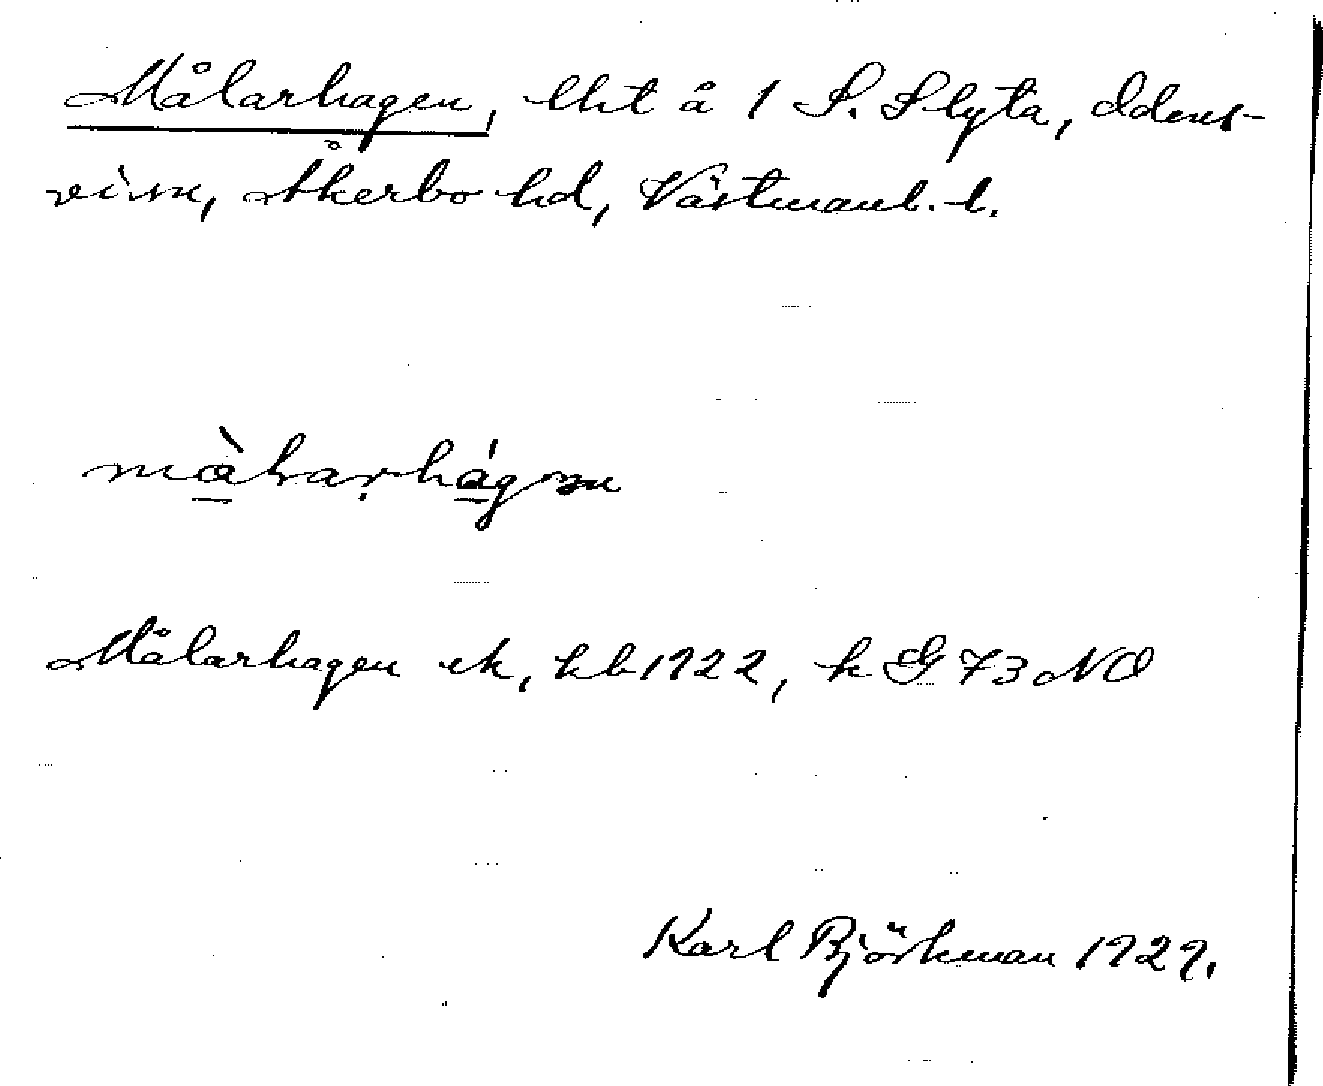 Målarhagen, lht å 1 S. Slyta, Odens-
visn, Åkerbo hd, Västmanl. l.
Målarhagen ek, hb 1922, k G 73 NO
Karl Björkman 1929.